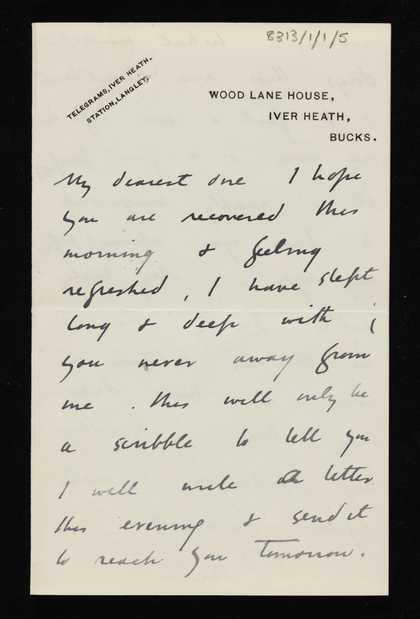 8313/1/1/5
TELEGRAMS, IVER HEATH.
STATION, LANGLEY.
WOOD LANE HOUSE,
IVER HEATH,
BUCKS.
My dearest one I hope
you are recovered this
morning & feeling
refreshed, I have slept
long & deep with
you never away from
me. This will only be
a scribble to tell you
I will write a letter
this evening & send it
to reach you tomorrow.